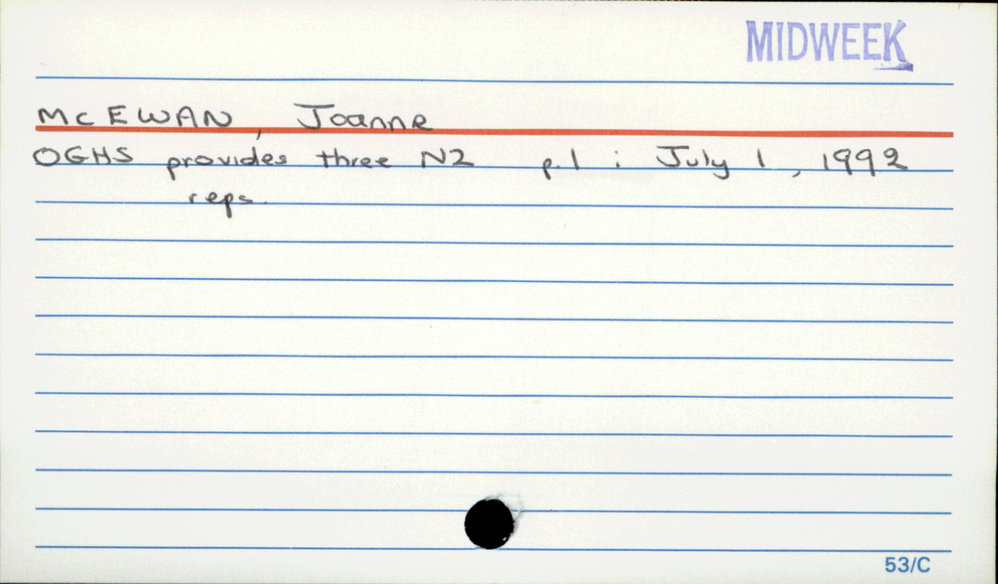 MIDWEEK
McEWAN, Joanne
OGHS provides three NZ p.1 : July 1, 1992
reps.
53/C